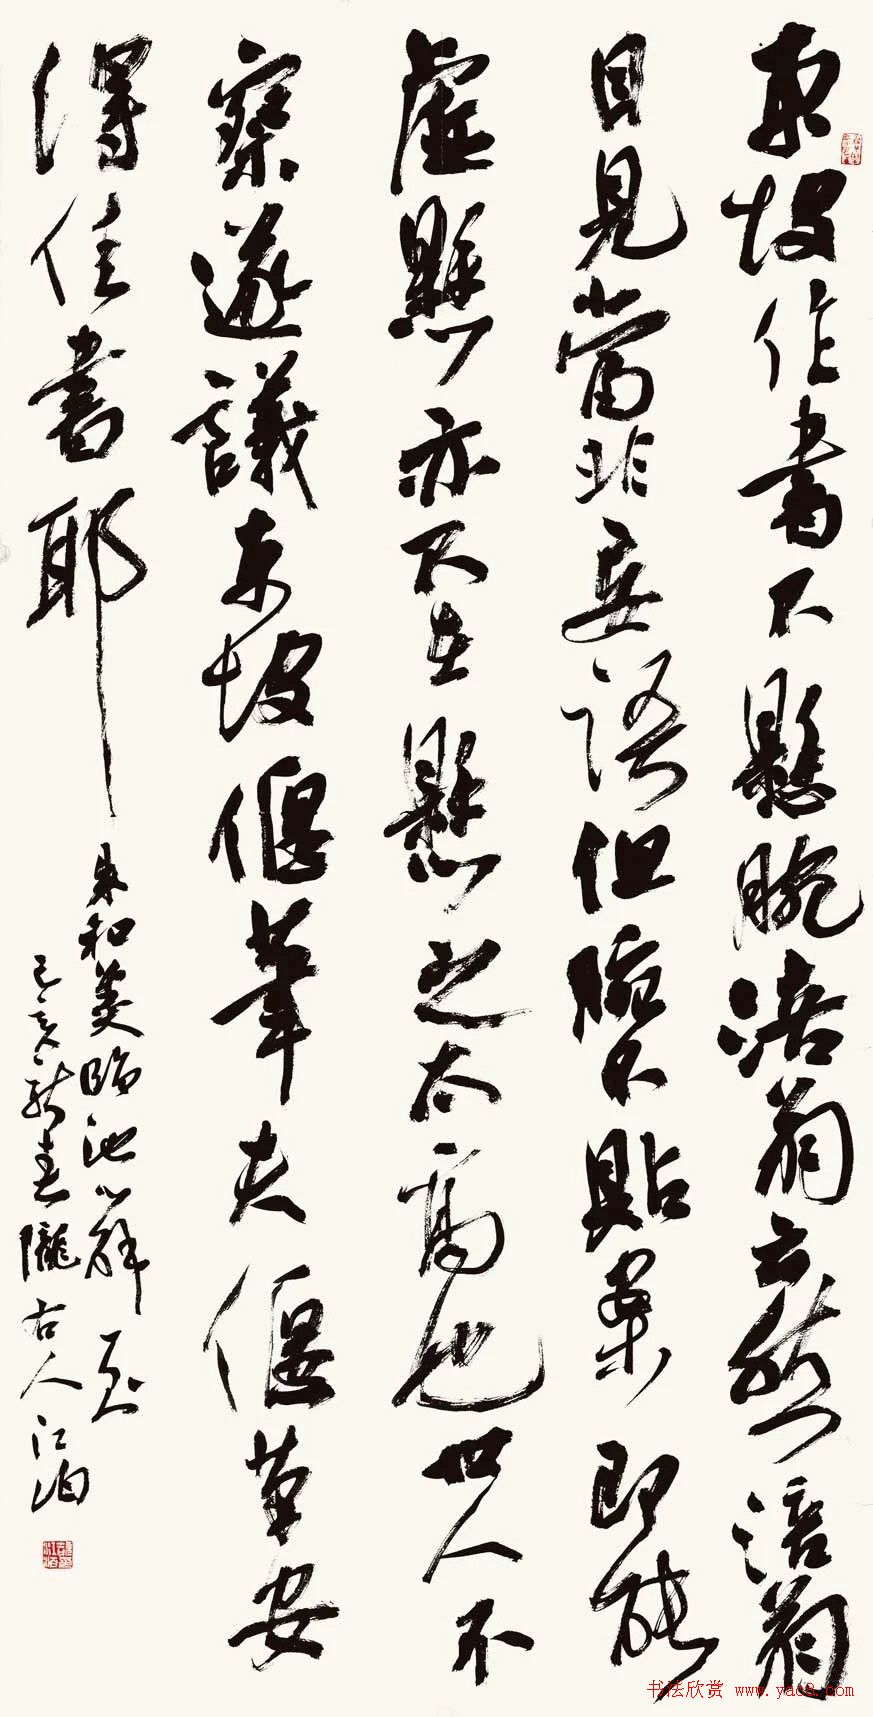 東坡作書不懸腕涪翁云然涪翁
目見當非妄語但腕不貼案即能
虛懸亦不在懸之太高也世人不
察遂議東坡偃筆夫偃筆安
得佳書耶
朱和羹臨池心解
己亥新春隴右人江泊
书法欣赏 www.yac8.com